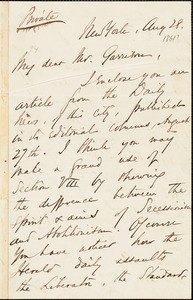 Private
New York, Aug 28.
1861
My dear Mr. Garrison,
I enclose you an
article from the Daily
News, of this city, published
in its Editorial columns, August
27th. I think you may
make a Grand use of
Section VIII by showing
the difference between the
Spirit & aims of Secessionism
and Abolitionism. Of course
you have noticed how the
Herald daily assaults
the Liberator, the Standard